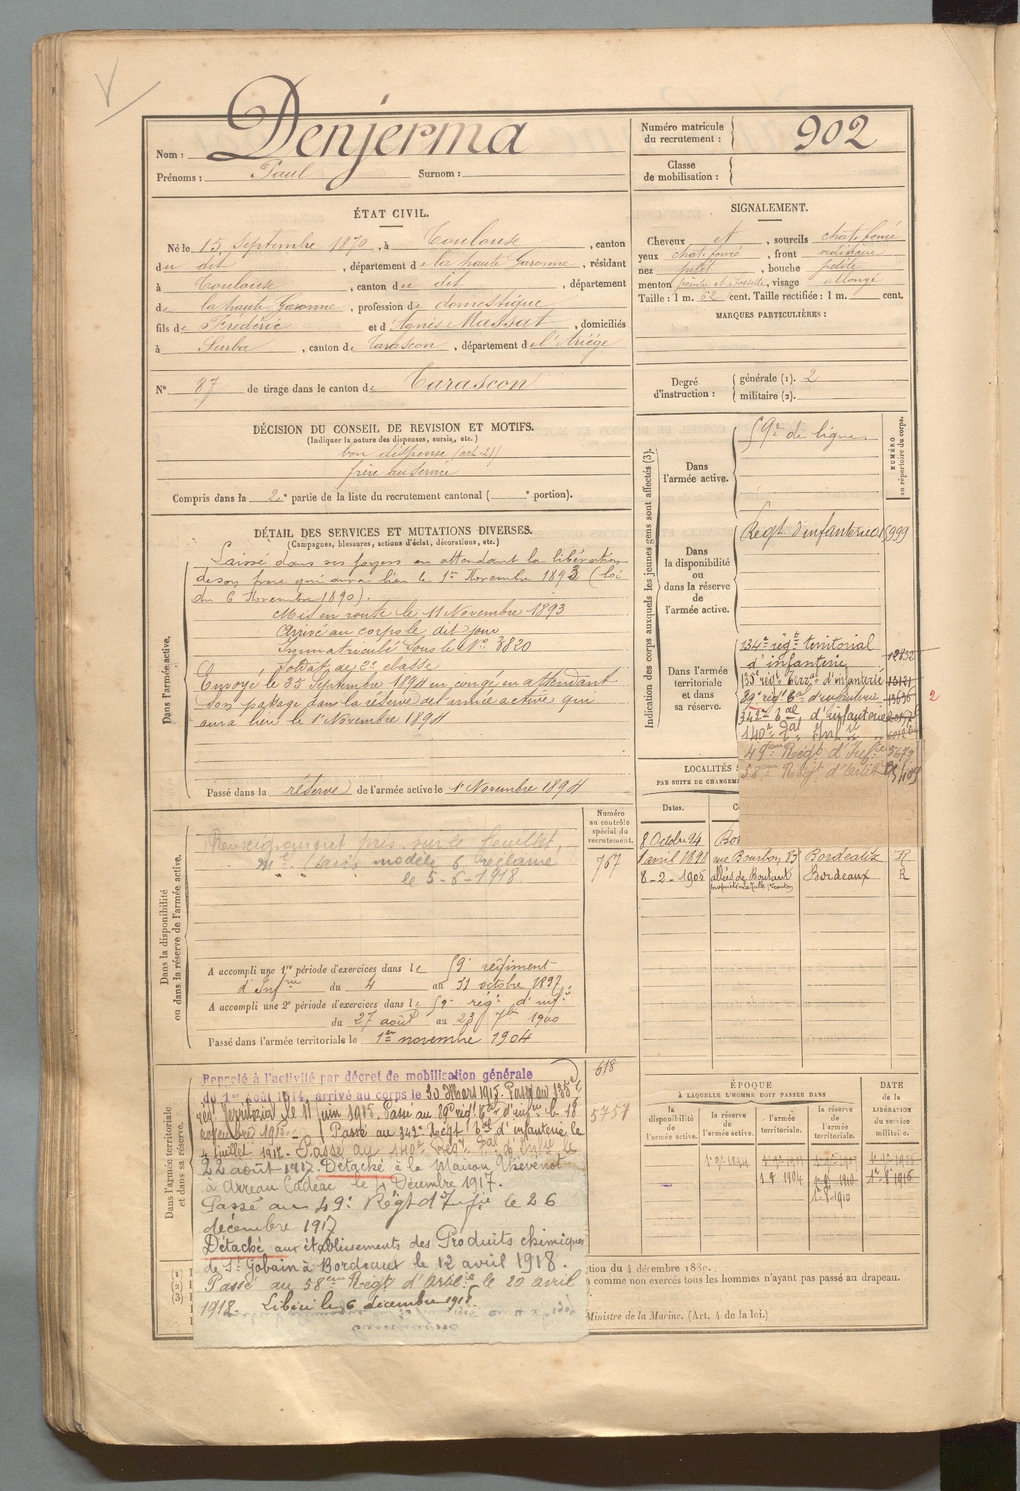 Nom : Denjerma
Prénoms : Paul Surnom :
Numéro matricule du recrutement : 902
Classe de mobilisation :
ÉTAT CIVIL.
Né le 15 Septembre 1870, à Toulouse, canton
du dit, département de la haute Garonne, résidant
à Toulouse, canton du dit, département
de la haute Garonne, profession de domestique
fils de Frédéric et d'Agnès Massat, domiciliés
à Surba, canton de Tarascon, département de l'Ariège
N° 87 de tirage dans le canton de Tarascon
SIGNALEMENT.
Cheveux et, sourcils chat. foncé
yeux chat. foncé, front ordinaire
nez petit, bouche petite
menton, visage allongé
Taille : 1 m. 62 cent. Taille rectifiée : 1 m. cent.
MARQUES PARTICULIÈRES :
Degré d'instruction :
générale (1). 2
militaire (2).
DÉCISION DU CONSEIL DE REVISION ET MOTIFS.
(Indiquer la nature des dispenses, sursis, etc.)
bon dispensé (art. 21)
frère au service
Compris dans la 2e partie de la liste du recrutement cantonal ( e portion).
DÉTAIL DES SERVICES ET MUTATIONS DIVERSES.
(Campagnes, blessures, actions d'éclat, décorations, etc.)
Dans l'armée active.
Laissé dans ses foyers en attendant la libération
de son frère qui aura lieu le 1er Novembre 1893 (loi
du 6 Novembre 1890).
Mis en route le 11 Novembre 1893
Arrivé au corps le dit jour
Immatriculé sous le No 3820
soldat de 2e classe
Envoyé le 25 Septembre 1894 en congé en attendant
son passage dans la réserve de l'armée active qui
aura lieu le 1er Novembre 1894
Passé dans la réserve de l'armée active le 1er Novembre 1894
Numéro au contrôle spécial du recrutement.
Dans la disponibilité ou dans la réserve de l'armée active.
Renseignement pris sur le feuillet,
modèle 6 réclamé
le 5-6-1918.
767
A accompli une 1re période d'exercices dans le 59e régiment
d'Infrie du 4 au 31 octobre 1897.
A accompli une 2e période d'exercices dans le 59e régt d'infie
du 27 août au 23 7bre 1900
Passé dans l'armée territoriale le 1er novembre 1904
Dans l'armée territoriale et dans sa réserve.
618
5757
Rappelé à l'activité par décret de mobilisation générale
du 1er Août 1914, arrivé au corps le 30 Mars 1915. Passé au 135e
régt Territorial le 11 juin 1915. Passé au 89e régt Tal d'infrie le 18
novembre 1915. Passé au 342e Régt Tal d'infanterie le
4 Juillet 1917. Passé au 140e Régt Tal d'Infie le
22 août 1917. Détaché à la Maison Thévenot
à Arreau Cadéac le 4 Décembre 1917.
Passé au 49e Régt d'Infie le 26
décembre 1917
Détaché aux établissements des Produits chimiques
de St Gobain à Bordeaux le 12 avril 1918.
Passé au 58eme Régt d'Artie le 20 avril
1918. Libéré le 6 décembre 1918.
Indication des corps auxquels les jeunes gens sont affectés (3).
NUMÉRO au répertoire du corps.
Dans l'armée active.
59e de ligne.
Dans la disponibilité ou dans la réserve de l'armée active.
Régt d'infanterie 5999
Dans l'armée territoriale et dans sa réserve.
134e régt territorial
d'infanterie 12832
135e régt Terr. d'infanterie
89e régt Tal d'infanterie 13636 2
342e Tal d'infanterie
140e Tal Infie
49eme Régt d'Infrie 5679
58eme Régt d'Artie
LOCALITÉS
PAR SUITE DE CHANGEM
Dates.
8 Octobre 94 Bor
1 avril 1898 rue Bourbon, 83 Bordeaux R
8-2-1905 allées de Boutaut Bordeaux R
ÉPOQUE
À LAQUELLE L'HOMME DOIT PASSER DANS
la disponibilité de l'armée active.
la réserve de l'armée active.
l'armée territoriale.
la réserve de l'armée territoriale.
DATE de la LIBÉRATION du service militaire.
1er 9bre 1894
1.8 1904
1er 8 1910
1er 8 1910
1er 8 1916
(1)
(2)
(3)
ction du 4 décembre 1889.
a comme non exercés tous les hommes n'ayant pas passé au drapeau.
Ministre de la Marine. (Art. 4 de la loi.)